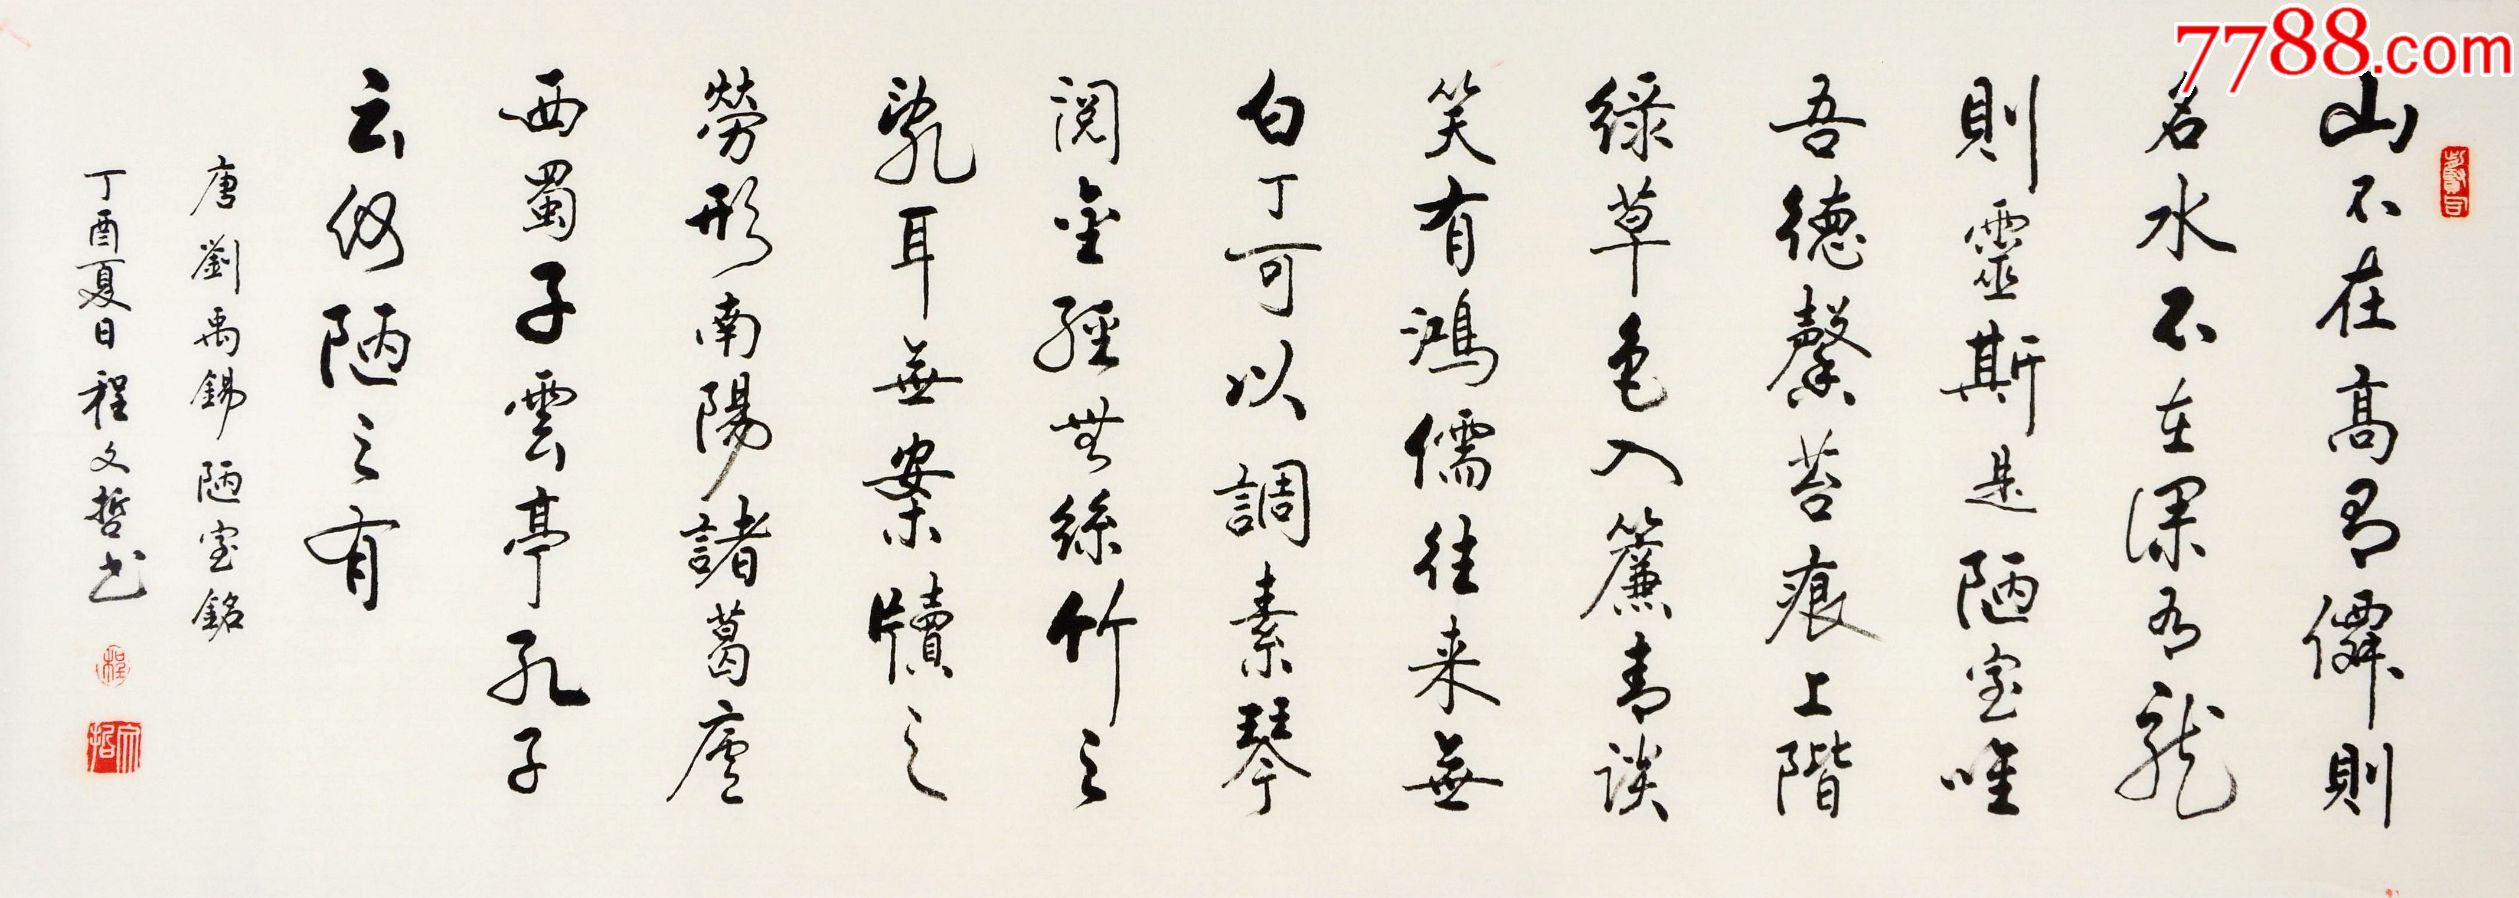 7788.com
山不在高有僊則
名水不在深有龍
則靈斯是陋室唯
吾德馨苔痕上階
綠草色入簾青談
笑有鴻儒往来無
白丁可以調素琴
閱金經無絲竹之
亂耳無案牘之
勞形南陽諸葛廬
西蜀子雲亭孔子
云何陋之有
唐劉禹錫陋室銘
丁酉夏日程文哲书
程
文哲